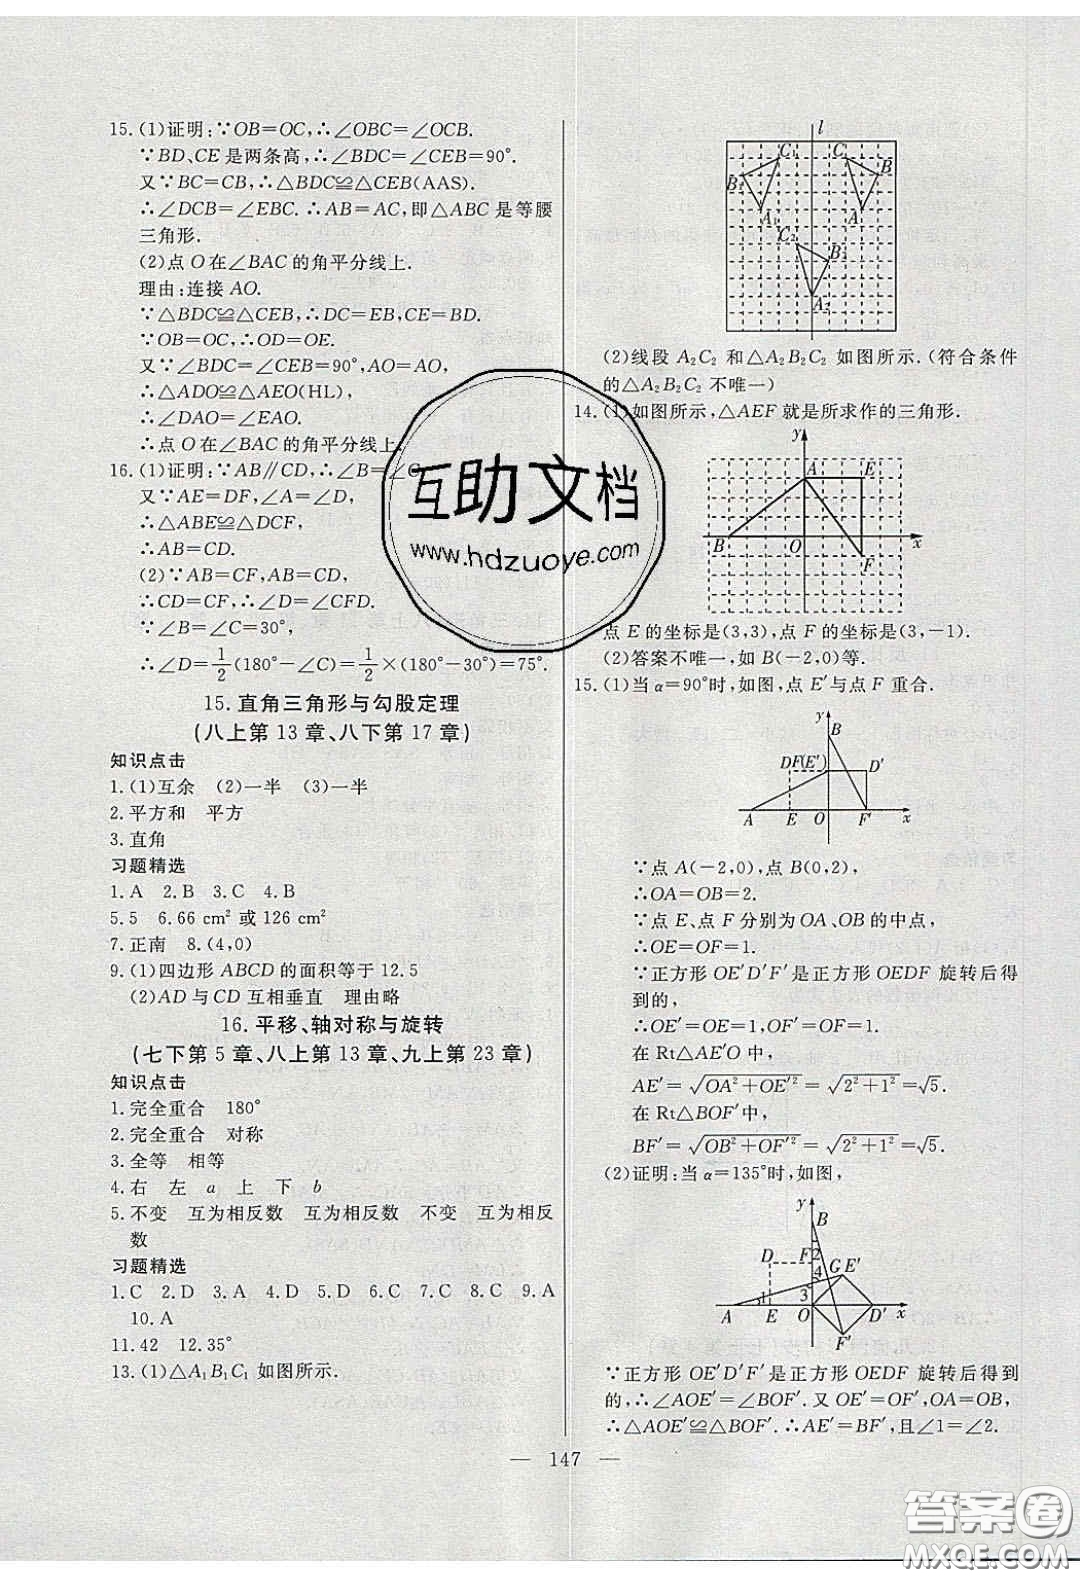 15.(1)证明:∵OB=OC,∴∠OBC=∠OCB.
∵BD、CE是两条高,∴∠BDC=∠CEB=90°.
又∵BC=CB,∴△BDC≌△CEB(AAS).
∴∠DCB=∠EBC.∴AB=AC,即△ABC是等腰
三角形.
(2)点O在∠BAC的角平分线上.
理由:连接AO.
∵△BDC≌△CEB,∴DC=EB,CE=BD.
∵OB=OC,∴OD=OE.
又∵∠BDC=∠CEB=90°,AO=AO,
∴△ADO≌△AEO(HL),
∴∠DAO=∠EAO.
∴点O在∠BAC的角平分线上.
16.(1)证明:∵AB∥CD,∴∠B=∠C
又∵AE=DF,∠A=∠D,
∴△ABE≌△DCF,
∴AB=CD.
(2)∵AB=CF,AB=CD,
∴CD=CF,∴∠D=∠CFD.
∵∠B=∠C=30°,
∴∠D=1/2(180°-∠C)=1/2×(180°-30°)=75°.
15.直角三角形与勾股定理
(八上第13章、八下第17章)
知识点击
1.(1)互余 (2)一半 (3)一半
2.平方和 平方
3.直角
习题精选
1.A 2.B 3.C 4.B
5.5 6.66 cm²或126 cm²
7.正南 8.(4,0)
9.(1)四边形ABCD的面积等于12.5
(2)AD与CD互相垂直 理由略
16.平移、轴对称与旋转
(七下第5章、八上第13章、九上第23章)
知识点击
1.完全重合 180°
2.完全重合 对称
3.全等 相等
4.右 左 a 上 下 b
5.不变 互为相反数 互为相反数 不变 互为相反
数
习题精选
1.C 2.D 3.A 4.D 5.D 6.A 7.D 8.C 9.A
10.A
11.42 12.35°
13.(1)△A₁B₁C₁如图所示.
l
C₁ C
B₁ B
A₁ A
C₂
B₂
A₂
(2)线段A₂C₂和△A₂B₂C₂如图所示.(符合条件
的△A₂B₂C₂不唯一)
14.(1)如图所示,△AEF就是所求作的三角形.
y
A E
B O x
F
点E的坐标是(3,3),点F的坐标是(3,-1).
(2)答案不唯一,如B(-2,0)等.
15.(1)当α=90°时,如图,点E′与点F重合.
y
B
D F(E′) D′
A E O F′ x
∵点A(-2,0),点B(0,2),
∴OA=OB=2.
∵点E、点F分别为OA、OB的中点,
∴OE=OF=1.
∵正方形OE′D′F′是正方形OEDF旋转后得
到的,
∴OE′=OE=1,OF′=OF=1.
在Rt△AE′O中,
AE′=√(OA²+OE′²)=√(2²+1²)=√5.
在Rt△BOF′中,
BF′=√(OB²+OF′²)=√(2²+1²)=√5.
(2)证明:当α=135°时,如图,
y
B
D F 2
4 G E′
1 3
A E O D′ x
F′
∵正方形OE′D′F′是正方形OEDF旋转后得到
的,∴∠AOE′=∠BOF′.又OE′=OF′,OA=OB,
∴△AOE′≌△BOF′.∴AE′=BF′,且∠1=∠2.
— 147 —
互助文档
www.hdzuoye.com
答案圈
MXQE.COM